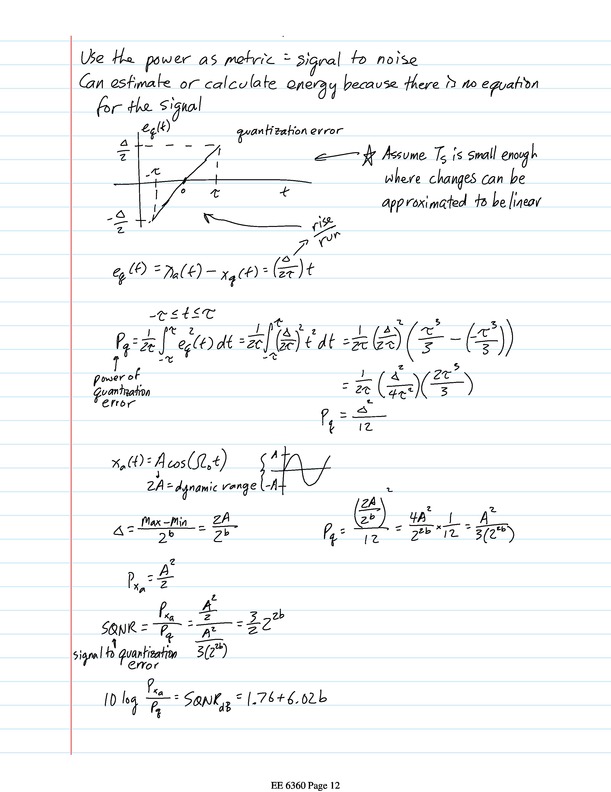 Use the power as metric = signal to noise
Can estimate or calculate energy because there is no equation
for the signal
e_q(t)
quantization error
Δ/2
-τ
0
τ
t
-Δ/2
☆ Assume T_s is small enough
where changes can be
approximated to be linear
rise/run
e_q(t) = x_a(t) - x_q(t) = (Δ/2τ) t
-τ ≤ t ≤ τ
P_q = 1/2τ ∫_{-τ}^{τ} e_q²(t) dt = 1/2τ ∫_{-τ}^{τ} (Δ/2τ)² t² dt = 1/2τ (Δ/2τ)² (τ³/3 - (-τ³/3))
power of
quantization
error
= 1/2τ (Δ²/4τ²)(2τ³/3)
P_q = Δ²/12
x_a(t) = A cos(Ω_0 t)
A
-A
2A = dynamic range
Δ = Max-Min/2^b = 2A/2^b
P_q = (2A/2^b)²/12 = 4A²/2^{2b} × 1/12 = A²/3(2^{2b})
P_{x_a} = A²/2
SQNR = P_{x_a}/P_q = (A²/2)/(A²/3(2^{2b})) = 3/2 2^{2b}
signal to quantization
error
10 log P_{x_a}/P_q = SQNR_{dB} = 1.76 + 6.02b
EE 6360 Page 12